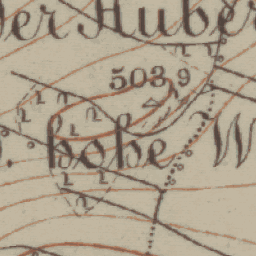 der Huber
503,9
hohe W